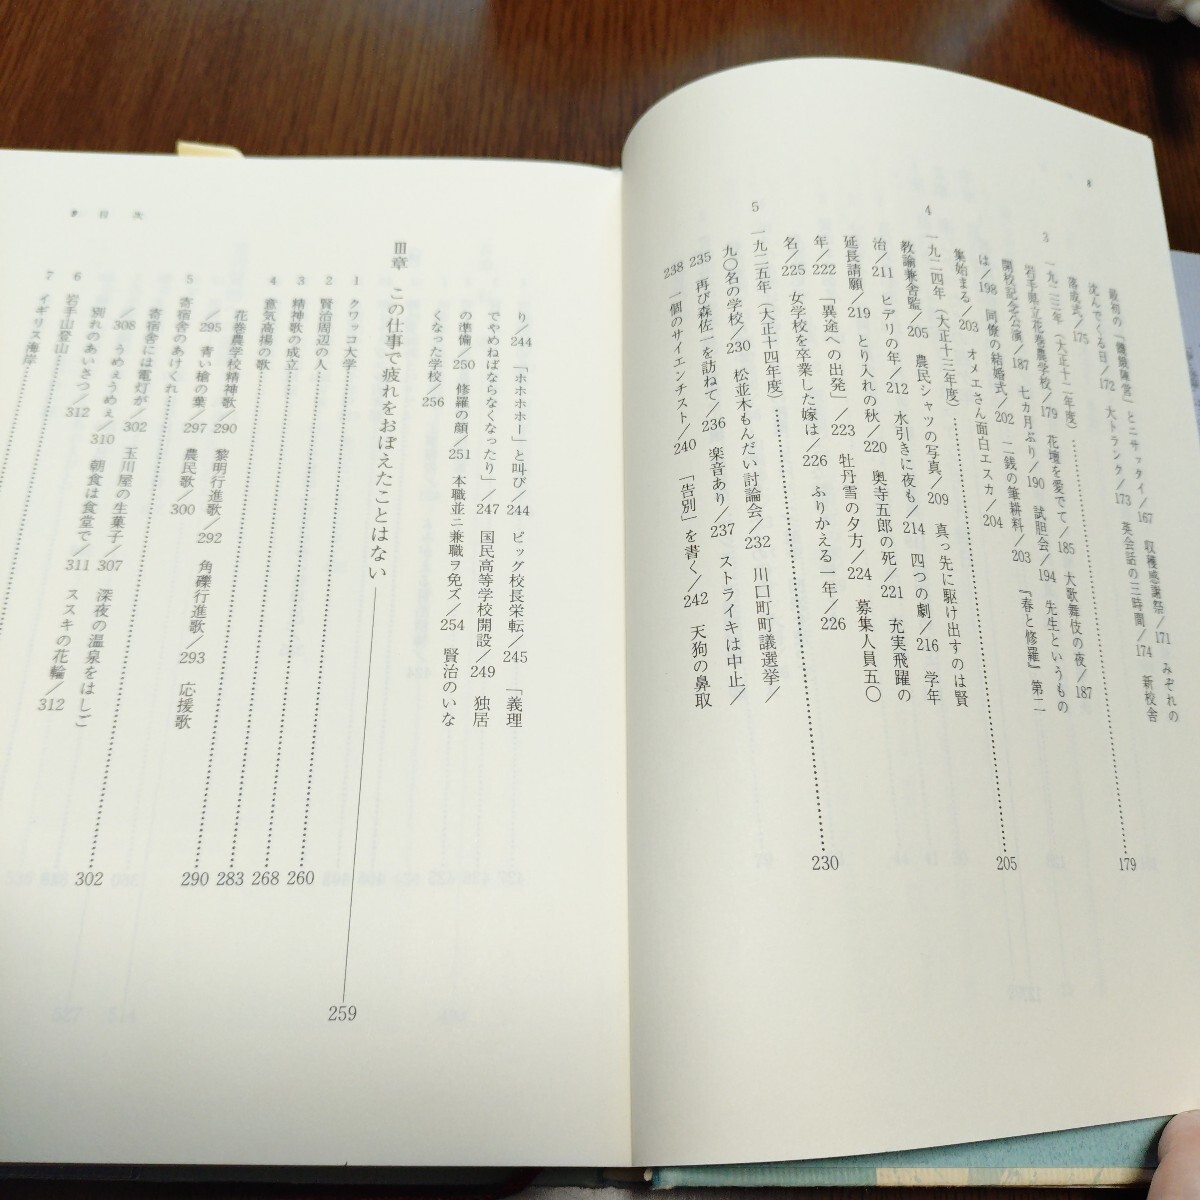 8
最初の「饑餓陣営」とニサッタイ／167　収穫感謝祭／171　みぞれの
沈んでくる日／172　大トランク／173　英会話の三時間／174　新校舎
落成式／175
3　一九二三年（大正十二年度）……179
岩手県立花巻農学校／179　花壇を愛でて／185　大歌舞伎の夜／187
開校記念公演／187　七カ月ぶり／190　試胆会／194　先生というもの
は／198　同僚の結婚式／202　二銭の筆耕料／203　『春と修羅』第二
集始まる／203　オメエさん面白エスカ／204
4　一九二四年（大正十三年度）……205
教諭兼舎監／205　農民シャツの写真／209　真っ先に駆け出すのは賢
治／211　ヒデリの年／212　水引きに夜も／214　四つの劇／216　学年
延長請願／219　とり入れの秋／220　奥寺五郎の死／221　充実飛躍の
年／222　「異途への出発」／223　牡丹雪の夕方／224　募集人員五〇
名／225　女学校を卒業した嫁は／226　ふりかえる一年／226
5　一九二五年（大正十四年度）……230
九〇名の学校／230　松並木もんだい討論会／232　川口町町議選挙／
235　再び森佐一を訪ねて／236　楽音あり／237　ストライキは中止／
238　一個のサイエンチスト／240　「告別」を書く／242　天狗の鼻取
9　目次
り／244　「ホホホホー」と叫び／244　ビッグ校長栄転／245　「義理
でやめねばならなくなったり」／247　国民高等学校開設／249　独居
の準備／250　修羅の顔／251　本職並ニ兼職ヲ免ズ／254　賢治のいな
くなった学校／256
Ⅲ章　この仕事で疲れをおぼえたことはない　259
1　クワッコ大学
2　賢治周辺の人……260
3　精神歌の成立……268
4　意気高揚の歌……283
花巻農学校精神歌／290　黎明行進歌／292　角礫行進歌／293　応援歌
／295　青い槍の葉／297　農民歌／300
5　寄宿舎のあけくれ……290
寄宿舎には電灯が／302　玉川屋の生菓子／307　深夜の温泉をはしご
／308　うめぇうめぇ／310　朝食は食堂で／311　ススキの花輪／312
別れのあいさつ／312
6　岩手山登山……302
7　イギリス海岸